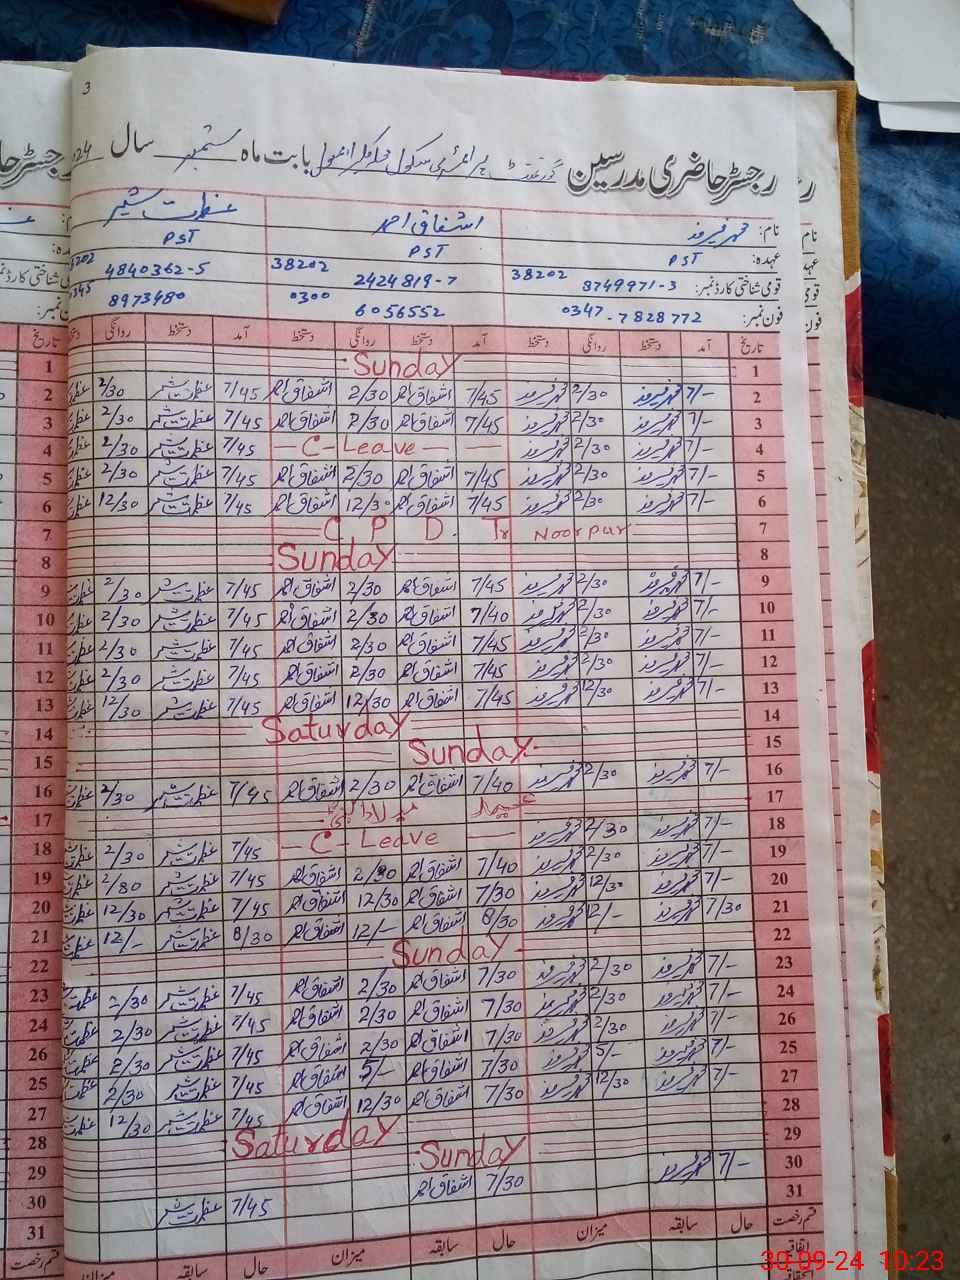 3
رجسٹر حاضری مدرسین گورنمنٹ پرائمری سکول بابت ماہ ستمبر سال 2024
نام: محمد فیروز اشفاق احمد عظمت شیر
عہدہ: PST PST PST
قومی شناختی کارڈ نمبر: 38202 8749971-3 38202 2424819-7 4840362-5
فون نمبر: 0347-7828772 0300 6056552 0345 8973480
تاریخ آمد دستخط روانگی دستخط آمد دستخط روانگی دستخط آمد دستخط روانگی دستخط تاریخ
1 Sunday 1
2 7/- محمد فیروز 2/30 محمد فیروز 7/45 اشفاق احمد 2/30 اشفاق احمد 7/45 عظمت شیر 2/30 2
3 7/- محمد فیروز 2/30 محمد فیروز 7/45 اشفاق احمد 2/30 اشفاق احمد 7/45 عظمت شیر 2/30 3
4 7/- محمد فیروز 2/30 محمد فیروز — C - Leave — 7/45 عظمت شیر 2/30 4
5 7/- محمد فیروز 2/30 محمد فیروز 7/45 اشفاق احمد 2/30 اشفاق احمد 7/45 عظمت شیر 2/30 5
6 7/- محمد فیروز 2/30 محمد فیروز 7/45 اشفاق احمد 12/30 اشفاق احمد 7/45 عظمت شیر 12/30 6
7 C P D. Tr Noorpur 7
8 Sunday 8
9 7/- محمد فیروز 2/30 محمد فیروز 7/45 اشفاق احمد 2/30 اشفاق احمد 7/45 عظمت شیر 2/30 9
10 7/- محمد فیروز 2/30 محمد فیروز 7/40 اشفاق احمد 2/30 اشفاق احمد 7/45 عظمت شیر 2/30 10
11 7/- محمد فیروز 2/30 محمد فیروز 7/45 اشفاق احمد 2/30 اشفاق احمد 7/45 عظمت شیر 2/30 11
12 7/- محمد فیروز 2/30 محمد فیروز 7/45 اشفاق احمد 2/30 اشفاق احمد 7/45 عظمت شیر 2/30 12
13 7/- محمد فیروز 12/30 محمد فیروز 7/45 اشفاق احمد 12/30 اشفاق احمد 7/45 عظمت شیر 12/30 13
14 Saturday 14
15 Sunday 15
16 7/- محمد فیروز 2/30 محمد فیروز 7/40 اشفاق احمد 2/30 اشفاق احمد 7/45 عظمت شیر 2/30 16
17 عید میلاد النبی 17
18 7/- محمد فیروز 2/30 محمد فیروز — C - Leave — 7/45 عظمت شیر 2/30 18
19 7/- محمد فیروز 2/30 محمد فیروز 7/40 اشفاق احمد 2/30 اشفاق احمد 7/45 عظمت شیر 2/30 19
20 7/- محمد فیروز 12/30 محمد فیروز 7/30 اشفاق احمد 12/30 اشفاق احمد 7/45 عظمت شیر 12/30 20
21 7/30 محمد فیروز 12/- محمد فیروز 8/30 اشفاق احمد 12/- اشفاق احمد 8/30 عظمت شیر 12/- 21
22 Sunday 22
23 7/- محمد فیروز 2/30 محمد فیروز 7/30 اشفاق احمد 2/30 اشفاق احمد 7/45 عظمت شیر 2/30 23
24 7/- محمد فیروز 2/30 محمد فیروز 7/30 اشفاق احمد 2/30 اشفاق احمد 7/45 عظمت شیر 2/30 24
26 7/- محمد فیروز 2/30 محمد فیروز 7/30 اشفاق احمد 2/30 اشفاق احمد 7/45 عظمت شیر 2/30 26
25 7/- محمد فیروز 5/- محمد فیروز 7/30 اشفاق احمد 5/- اشفاق احمد 7/45 عظمت شیر 2/30 25
27 7/- محمد فیروز 12/30 محمد فیروز 7/30 اشفاق احمد 12/30 اشفاق احمد 7/45 عظمت شیر 12/30 27
28 Saturday 28
29 Sunday 29
30 7/- محمد فیروز 7/30 اشفاق احمد 7/45 عظمت شیر 30
31 31
قسم رخصت حال سابقہ میزان حال سابقہ میزان حال سابقہ میزان قسم رخصت
اتفاقیہ
30-09-24 10:23